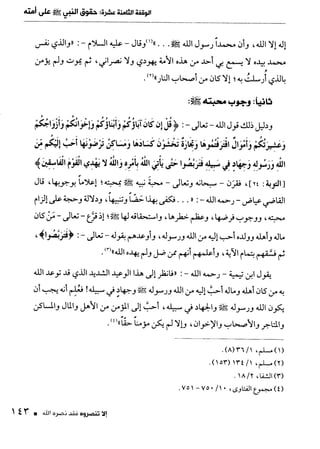 الوقفة الثامنة عشرة: حقوق النبي ﷺ على أمته
إلا الله، وأن محمداً رسول الله ﷺ... »(١)، وقال - عليه السلام -: «والذي نفس
محمد بيده لا يسمع بي أحد من هذه الأمة يهودي ولا نصراني، ثم يموت ولم يؤمن
بالذي أُرسلت به؛ إلا كان من أصحاب النار»(٢).
ثانياً: وجوب محبته ﷺ:
ودليل ذلك قول الله - تعالى -: ﴿قُلْ إِن كَانَ آبَاؤُكُمْ وَأَبْنَاؤُكُمْ وَإِخْوَانُكُمْ وَأَزْوَاجُكُمْ
وَعَشِيرَتُكُمْ وَأَمْوَالٌ اقْتَرَفْتُمُوهَا وَتِجَارَةٌ تَخْشَوْنَ كَسَادَهَا وَمَسَاكِنُ تَرْضَوْنَهَا أَحَبَّ إِلَيْكُم مِّنَ
اللَّهِ وَرَسُولِهِ وَجِهَادٍ فِي سَبِيلِهِ فَتَرَبَّصُوا حَتَّىٰ يَأْتِيَ اللَّهُ بِأَمْرِهِ وَاللَّهُ لَا يَهْدِي الْقَوْمَ الْفَاسِقِينَ﴾
[التوبة: ٢٤]، فقرن - سبحانه وتعالى - محبة نبيه ﷺ بمحبته؛ إعلاماً بوجوبها، قال
القاضي عياض - رحمه الله -: «... فكفى بهذا حضاً وتنبيهاً، ودلالة وحجة على إلزام
محبته، ووجوب فرضها، وعظم خطرها، واستحقاقه لها ﷺ؛ إذ قرّع - تعالى - من كان
ماله وأهله وولده أحب إليه من الله ورسوله، وأوعدهم بقوله - تعالى -: ﴿فَتَرَبَّصُوا﴾،
ثم فسّقهم بتمام الآية، وأعلمهم أنهم ممن ضل ولم يهده الله»(٣).
ويقول ابن تيمية - رحمه الله -: «فانظر إلى هذا الوعيد الشديد الذي قد توعد الله
به من كان أهله وماله أحب إليه من الله ورسوله وجهاد في سبيله! فعُلم أنه يجب أن
يكون الله ورسوله والجهاد في سبيله، أحب إلى المؤمن من الأهل والمال والمساكن
والمتاجر والأصحاب والإخوان، وإلا لم يكن مؤمناً حقاً»(٤).
(١) مسلم، ١/٣٦ (٨).
(٢) مسلم، ١/١٣٤ (١٥٣).
(٣) الشفا، ٢/١٨.
(٤) مجموع الفتاوى، ١٠/٧٥٠ - ٧٥١.
إلا تنصروه فقد نصره الله ■ ١٤٣